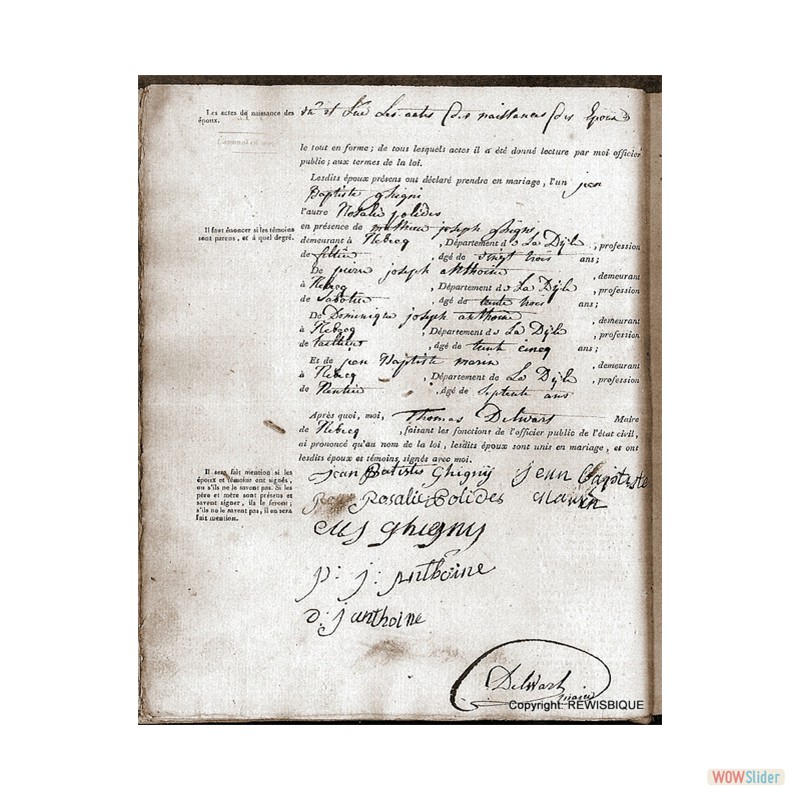 Les actes de naissance des époux.
vu et Lue Les actes des naissances des Epoux
le tout en forme; de tous lesquels actes il a été donné lecture par moi officier
public; aux termes de la loi.
Lesdits époux présens ont déclaré prendre en mariage, l'un jean
Baptiste ghigni
l'autre Rosalie polides
Il faut énoncer si les témoins sont parens, et à quel degré.
en présence de mathieu joseph ghigni
demeurant à Rebecq, Département de La Dyle, profession
de, âgé de vingt trois ans;
De pierre joseph anthoine, demeurant
à Rebecq, Département de La Dyle, profession
de Sabotier, âgé de trente trois ans;
De Dominique joseph anthoine, demeurant
à Rebecq, Département de La Dyle, profession
de tailleur, âgé de trente cincq ans;
Et de jean Baptiste marin, demeurant
à Rebecq, Département de La Dyle, profession
de Rentier, âgé de Septente ans
Après quoi, moi, Thomas Delwart Maire
de Rebecq, faisant les fonctions de l'officier public de l'état civil,
ai prononcé qu'au nom de la loi, lesdits époux sont unis en mariage, et ont
lesdits époux et témoins, signés avec moi.
Il sera fait mention si les
époux et témoins ont signés,
ou s'ils ne le savent pas. Si les
père et mère sont présens et
savent signer, ils le feront;
s'ils ne le savent pas, il en sera
fait mention.
jean Batiste Ghignij jean Baptiste
Rosalie Polides Marin
ghignij
p: j: anthoine
d: j anthoine
Delwart
maire
Copyright: REWISBIQUE
WOWSlider